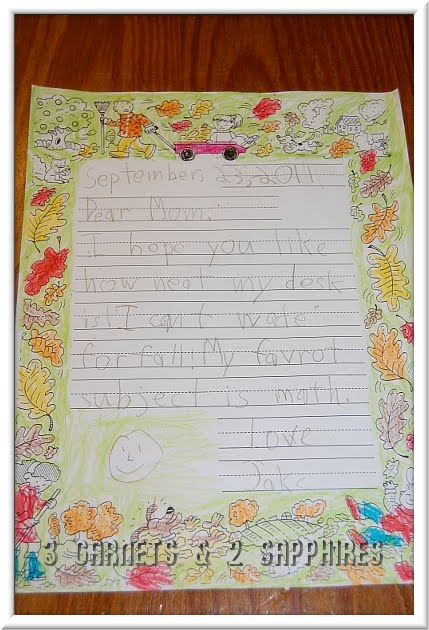 September 23, 2011
Dear Mom,
I hope you like
how neat my desk
is! I can't wate
for fall! My favrot
subject is math.
Love
Jake
3 GARNETS & 2 SAPPHIRES